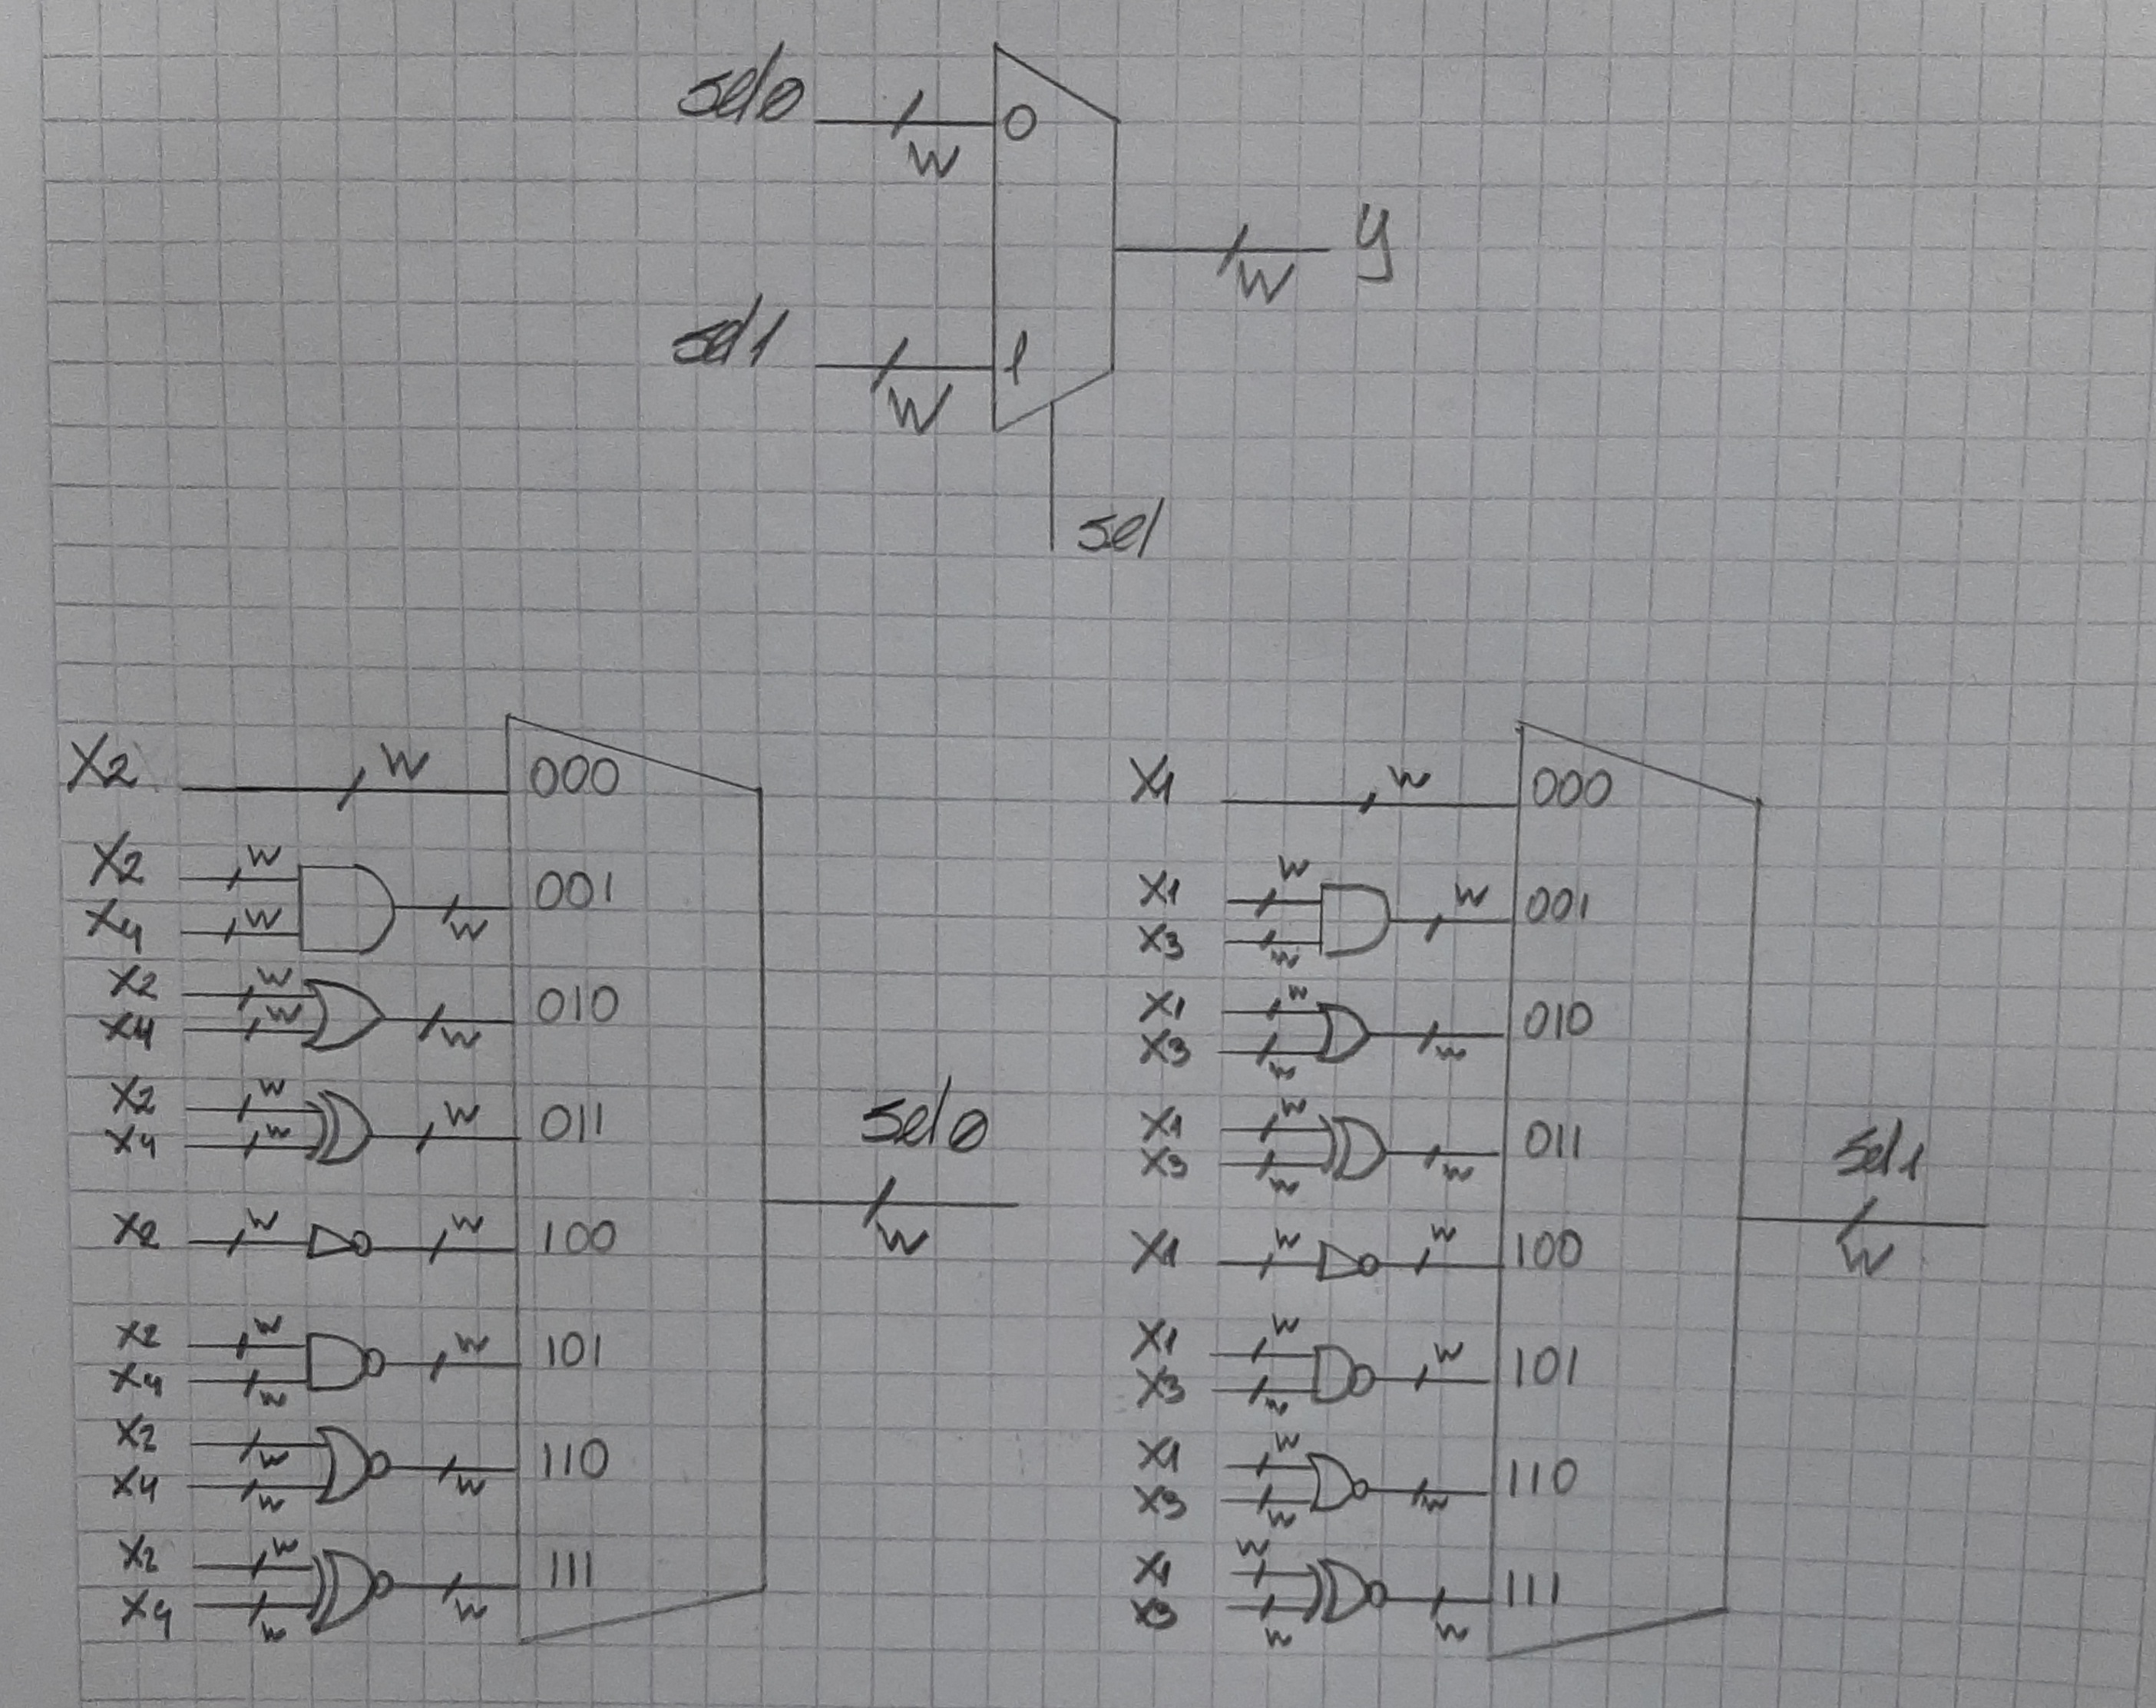 sel0
0
W
y
W
sel1
1
W
sel
X2 W 000
X2 W
X4 W W 001
X2 W
X4 W W 010
X2 W
X4 W W 011
X2 W W 100
X2 W
X4 W W 101
X2 W
X4 W W 110
X2 W
X4 W W 111
sel0
W
X1 W 000
X1 W
X3 W W 001
X1 W
X3 W W 010
X1 W
X3 W W 011
X1 W W 100
X1 W
X3 W W 101
X1 W
X3 W W 110
X1 W
X3 W W 111
sel1
W